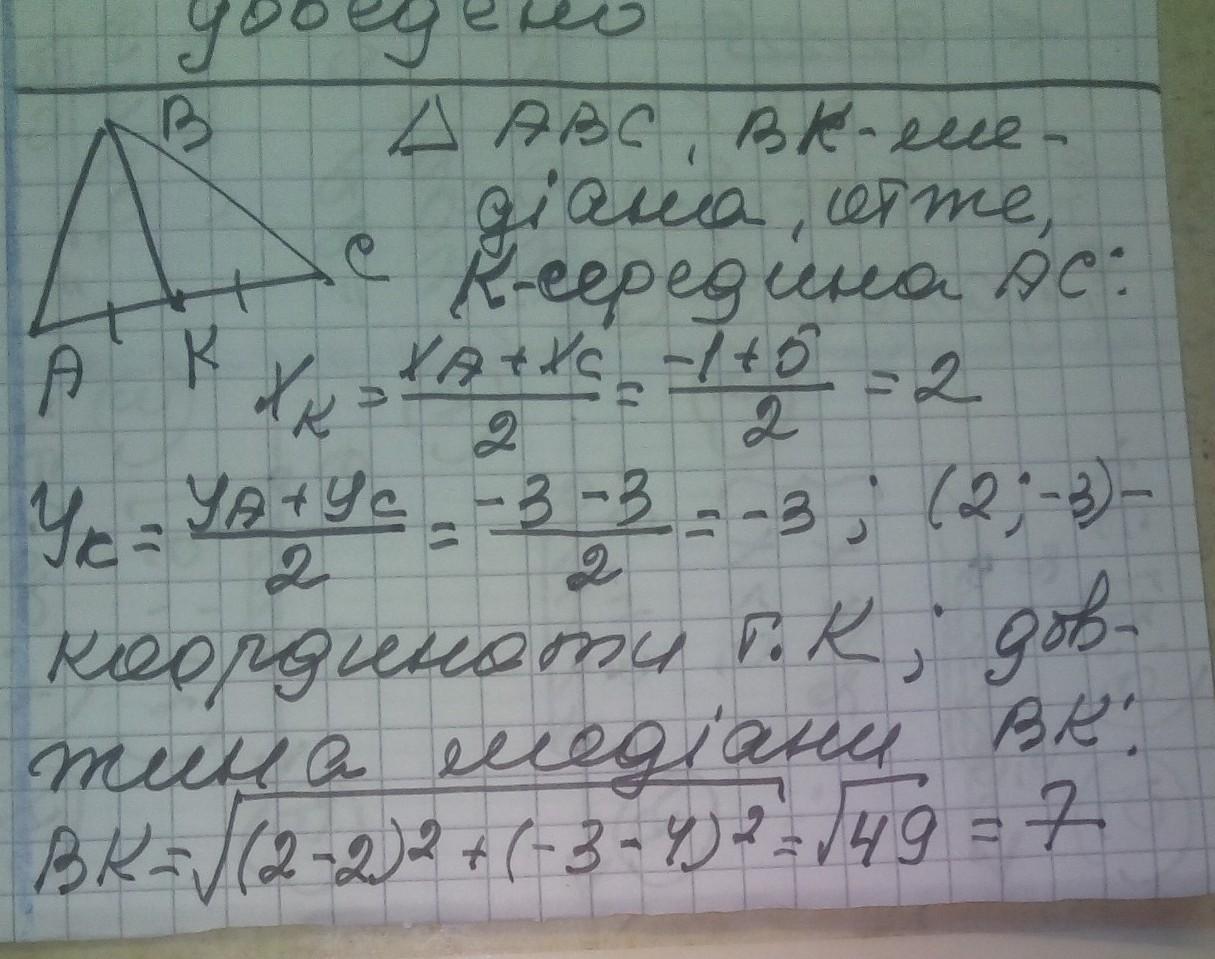 доведено
B
△ ABC, BK-ме-
діана, отже,
C
K-середина AC:
A
K
x_K = (x_A + x_C)/2 = (-1+5)/2 = 2
y_K = (y_A + y_C)/2 = (-3-3)/2 = -3; (2;-3)-
координати т. K; дов-
жина медіани BK:
BK = √((2-2)² + (-3-4)²) = √49 = 7